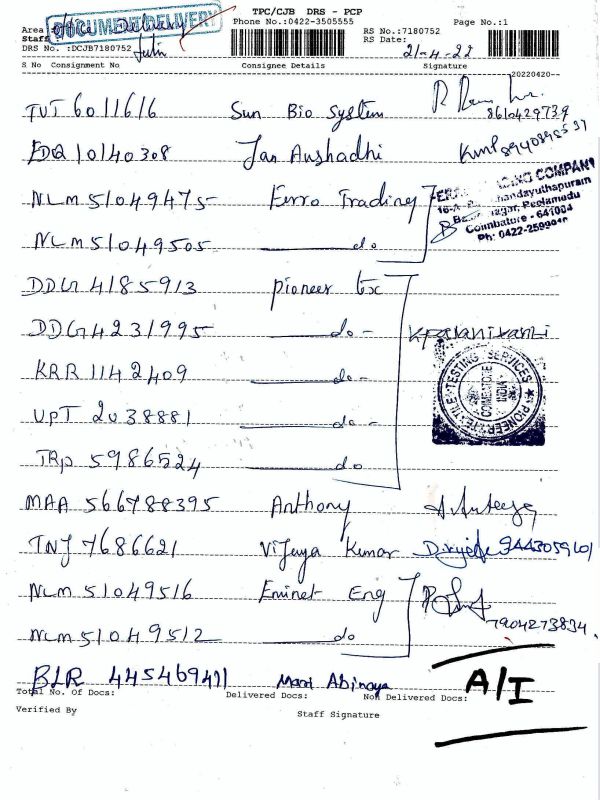 TPC/CJB DRS - PCP
DOCUMENT DELIVERY
Area
Phone No.:0422-3505555
Page No.:1
Staff
RS No.:7180752
DRS No. :DCJB7180752
RS Date: 21-4-22
S No Consignment No Consignee Details Signature
20220420--
TUT 6011616 Sun Bio System 8610429739
EDQ 10140308 Jan Aushadhi
NLM 51049475 Ferro Trading
NLM 51049505 do
DDG 4185913 Pioneer tex
DDG 4231995 do -
KRR 1142409 do -
UPT 2038881 do -
TRP 5986524 do
MAA 566788395 Anthony
TNJ 7686621 Vijaya Kumar 9443059601
NLM 51049516 Eminet Eng
NLM 51049512 do 7904273834
BLR 445469411 Abinaya
ING COMPANY
handayuthapuram
Nagar, Peelamedu
Coimbatore - 641004
Ph: 0422-2599
PIONEER TEXTILE TESTING SERVICES
COIMBATORE
INDIA
A/I
Total No. Of Docs: Delivered Docs: Non Delivered Docs:
Verified By Staff Signature